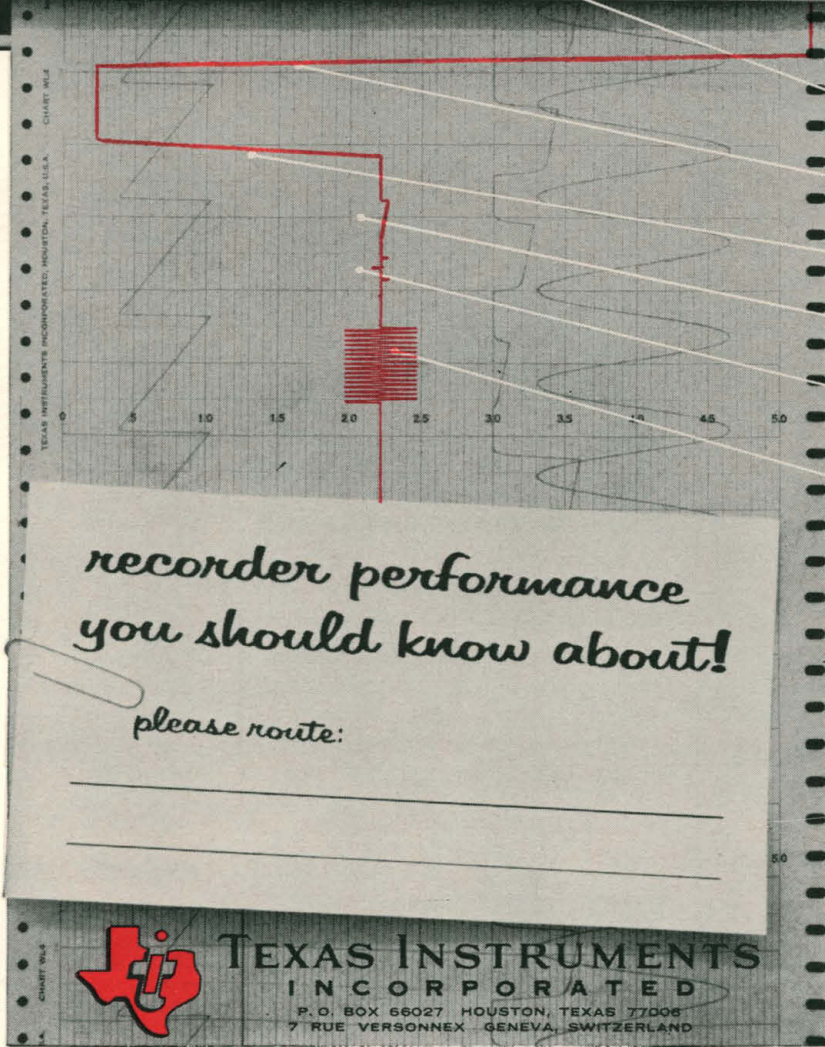 CHART WL4
TEXAS INSTRUMENTS INCORPORATED, HOUSTON, TEXAS, U.S.A.
0 .5 1.0 1.5 2.0 2.5 3.0 3.5 4.0 4.5 5.0
recorder performance
you should know about!
please route:
5.0
CHART WL4
TEXAS INSTRUMENTS
INCORPORATED
P.O. BOX 66027 HOUSTON, TEXAS 77006
7 RUE VERSONNEX GENEVA, SWITZERLAND